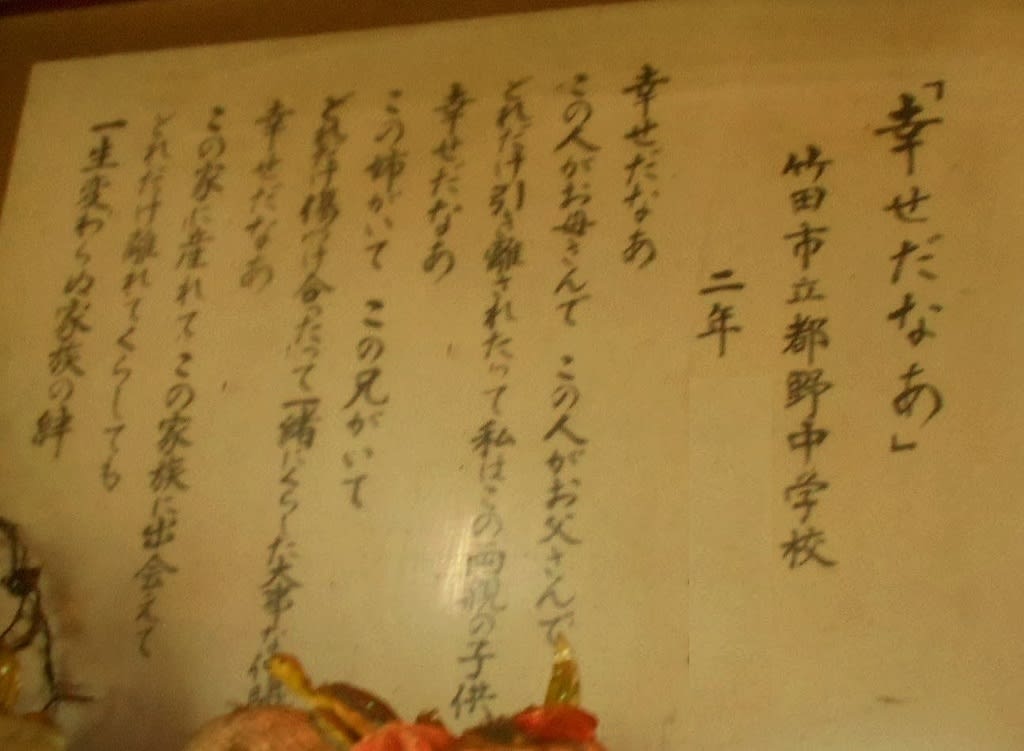 「幸せだなあ」
竹田市立都野中学校
二年
幸せだなあ
この人がお母さんで この人がお父さんで
どれだけ引き離されたって私はこの両親の子供
幸せだなあ
この姉がいて この兄がいて
どれだけ傷つけ合ったって一緒にくらした大事な
幸せだなあ
この家に産れて この家族に出会えて
どれだけ離れてくらしても
一生変わらぬ家族の絆